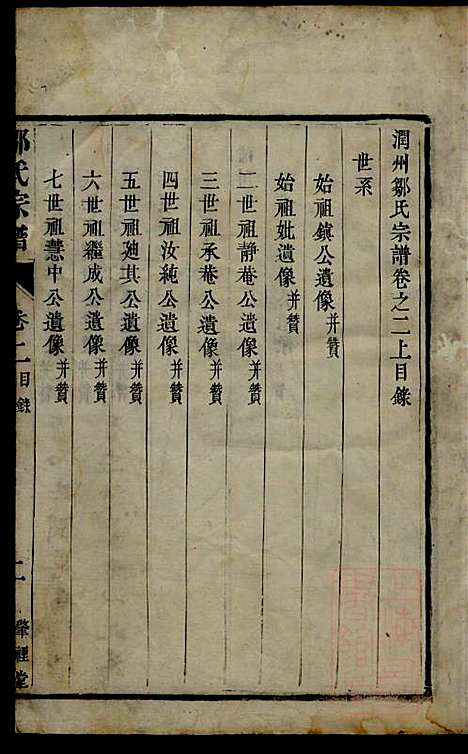 潤州鄒氏宗譜卷之二上目錄
世系
始祖鎮公遺像并贊
始祖妣遺像并贊
二世祖靜菴公遺像并贊
三世祖承菴公遺像并贊
四世祖汝純公遺像并贊
五世祖廸其公遺像并贊
六世祖繼成公遺像并贊
七世祖慧中公遺像并贊
鄒氏宗譜 卷二上 目錄